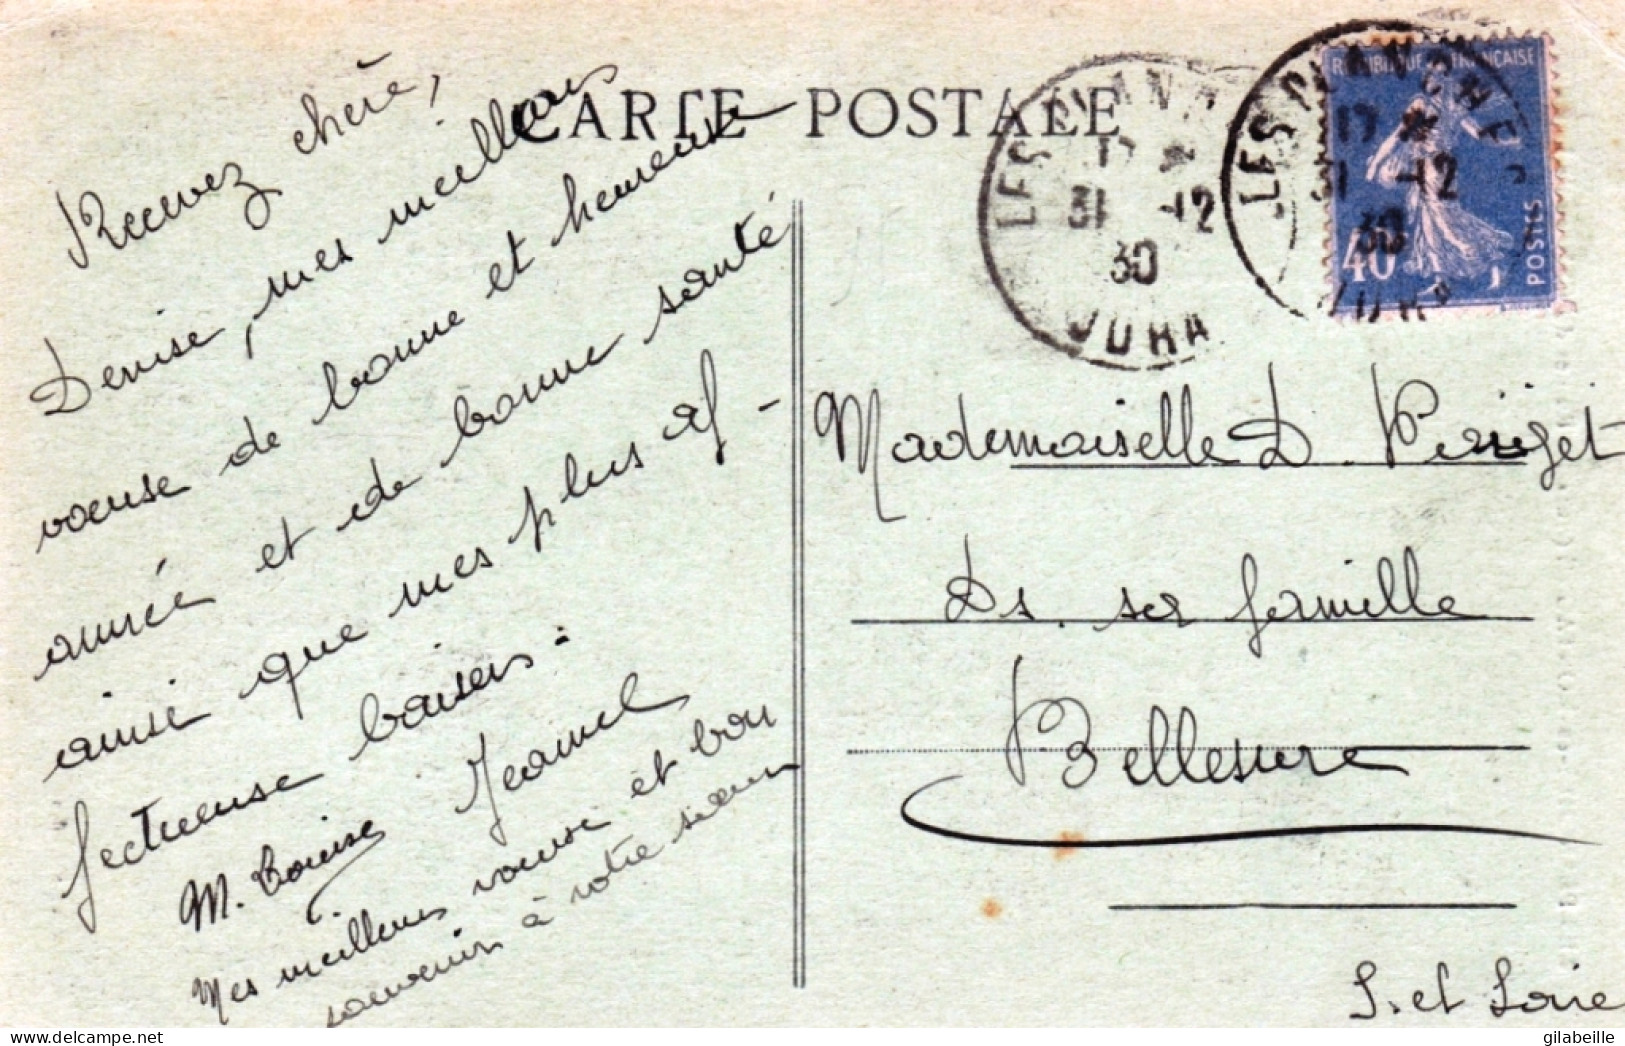 CARTE POSTALE
Recevez chère,
Denise, mes meilleurs
voeuse de bonne et heureuse
année et de bonne santé
ainsi que mes plus af-
fectueuse baisers.
M. Louise Jeannel
Mes meilleurs voeuse et bon
souvenir à votre sœur
LES PLANCHES
17
31 -12
30
JURA
LES PLANCHES
17
31 -12
30
JURA
REPUBLIQUE FRANÇAISE
40 c
POSTES
Mademoiselle D. Perriget
Ds. sa famille
Bellesure
S. et Loire
gilabeille